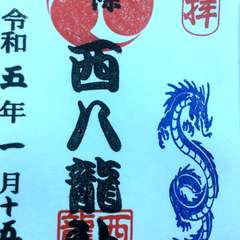 拝
西八龍
令和五年一月十五